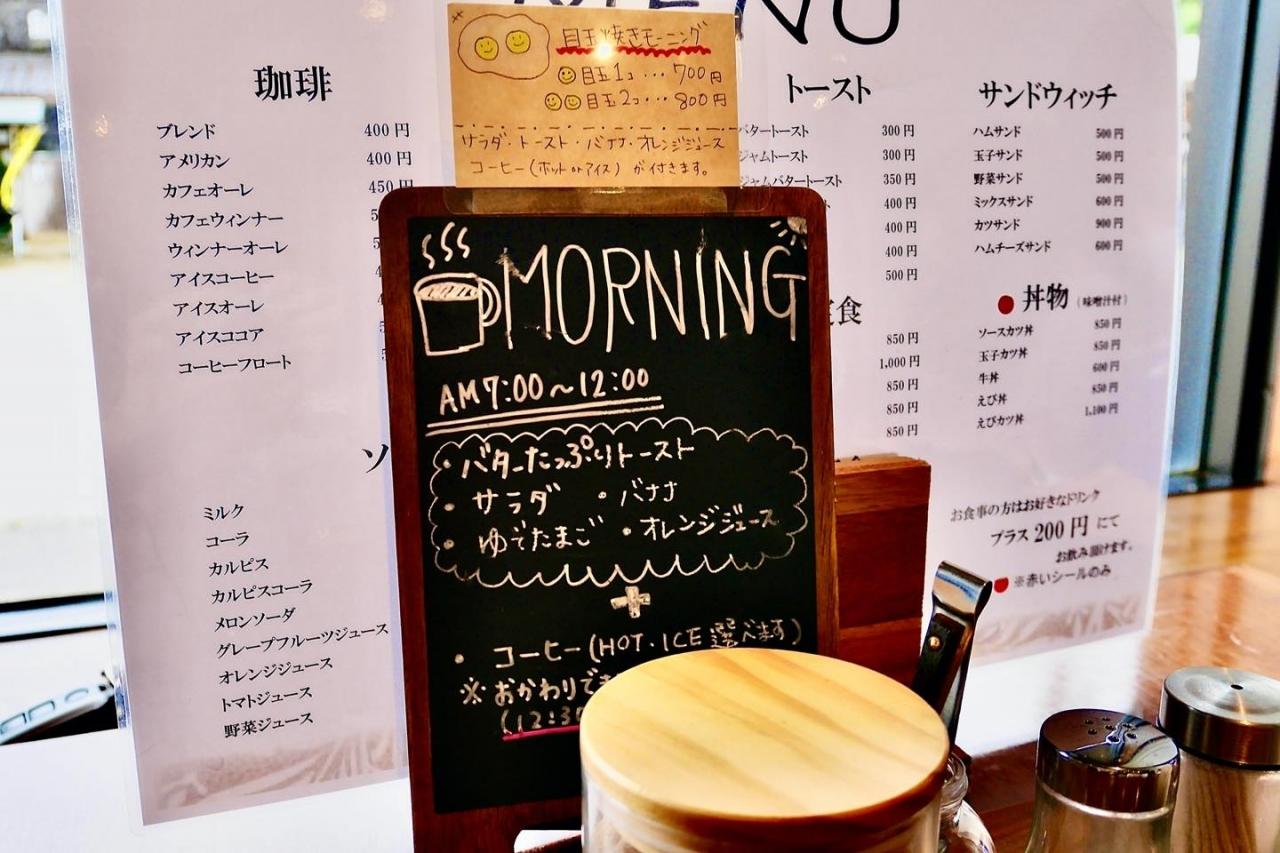 MENU
目玉焼きモーニング
目玉1コ・・・700円
目玉2コ・・・800円
サラダ・トースト・バナナ・オレンジジュース
コーヒー(ホット or アイス)が付きます。
珈琲
ブレンド 400円
アメリカン 400円
カフェオーレ 450円
カフェウィンナー
ウィンナーオーレ
アイスコーヒー
アイスオーレ
アイスココア
コーヒーフロート
ソ
ミルク
コーラ
カルピス
カルピスコーラ
メロンソーダ
グレープフルーツジュース
オレンジジュース
トマトジュース
野菜ジュース
MORNING
AM7:00～12:00
・バターたっぷりトースト
・サラダ ・バナナ
・ゆでたまご ・オレンジジュース
+
・コーヒー(HOT・ICE選べます)
※おかわりでき
(12:30
トースト
バタートースト 300円
ジャムトースト 300円
ジャムバタートースト 350円
400円
400円
500円
定食
850円
1,000円
850円
850円
850円
サンドウィッチ
ハムサンド 500円
玉子サンド 500円
野菜サンド 500円
ミックスサンド 600円
カツサンド 900円
ハムチーズサンド 600円
丼物(味噌汁付)
ソースカツ丼 850円
玉子カツ丼 850円
牛丼 600円
えび丼 850円
えびカツ丼 1,100円
お食事の方はお好きなドリンク
プラス200円にて
お飲み頂けます。
※赤いシールのみ